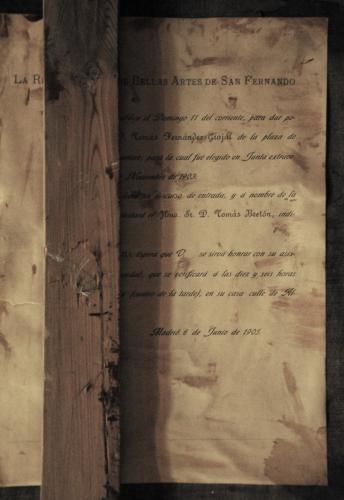 LA R E BELLAS ARTES DE SAN FERNANDO
el Domingo 11 del corriente, para dar po-
D. Tomás Fernández Grajal de la plaza de
para la cual fué elegido en Junta extraor-
Noviembre de 1903.
discurso de entrada, y á nombre de la
el Ilmo. Sr. D. Tomás Bretón, indi-
espera que V se sirva honrar con su asis-
que se verificará á las diez y seis horas
de la tarde), en su casa calle de Al-
Madrid 6 de Junio de 1905.